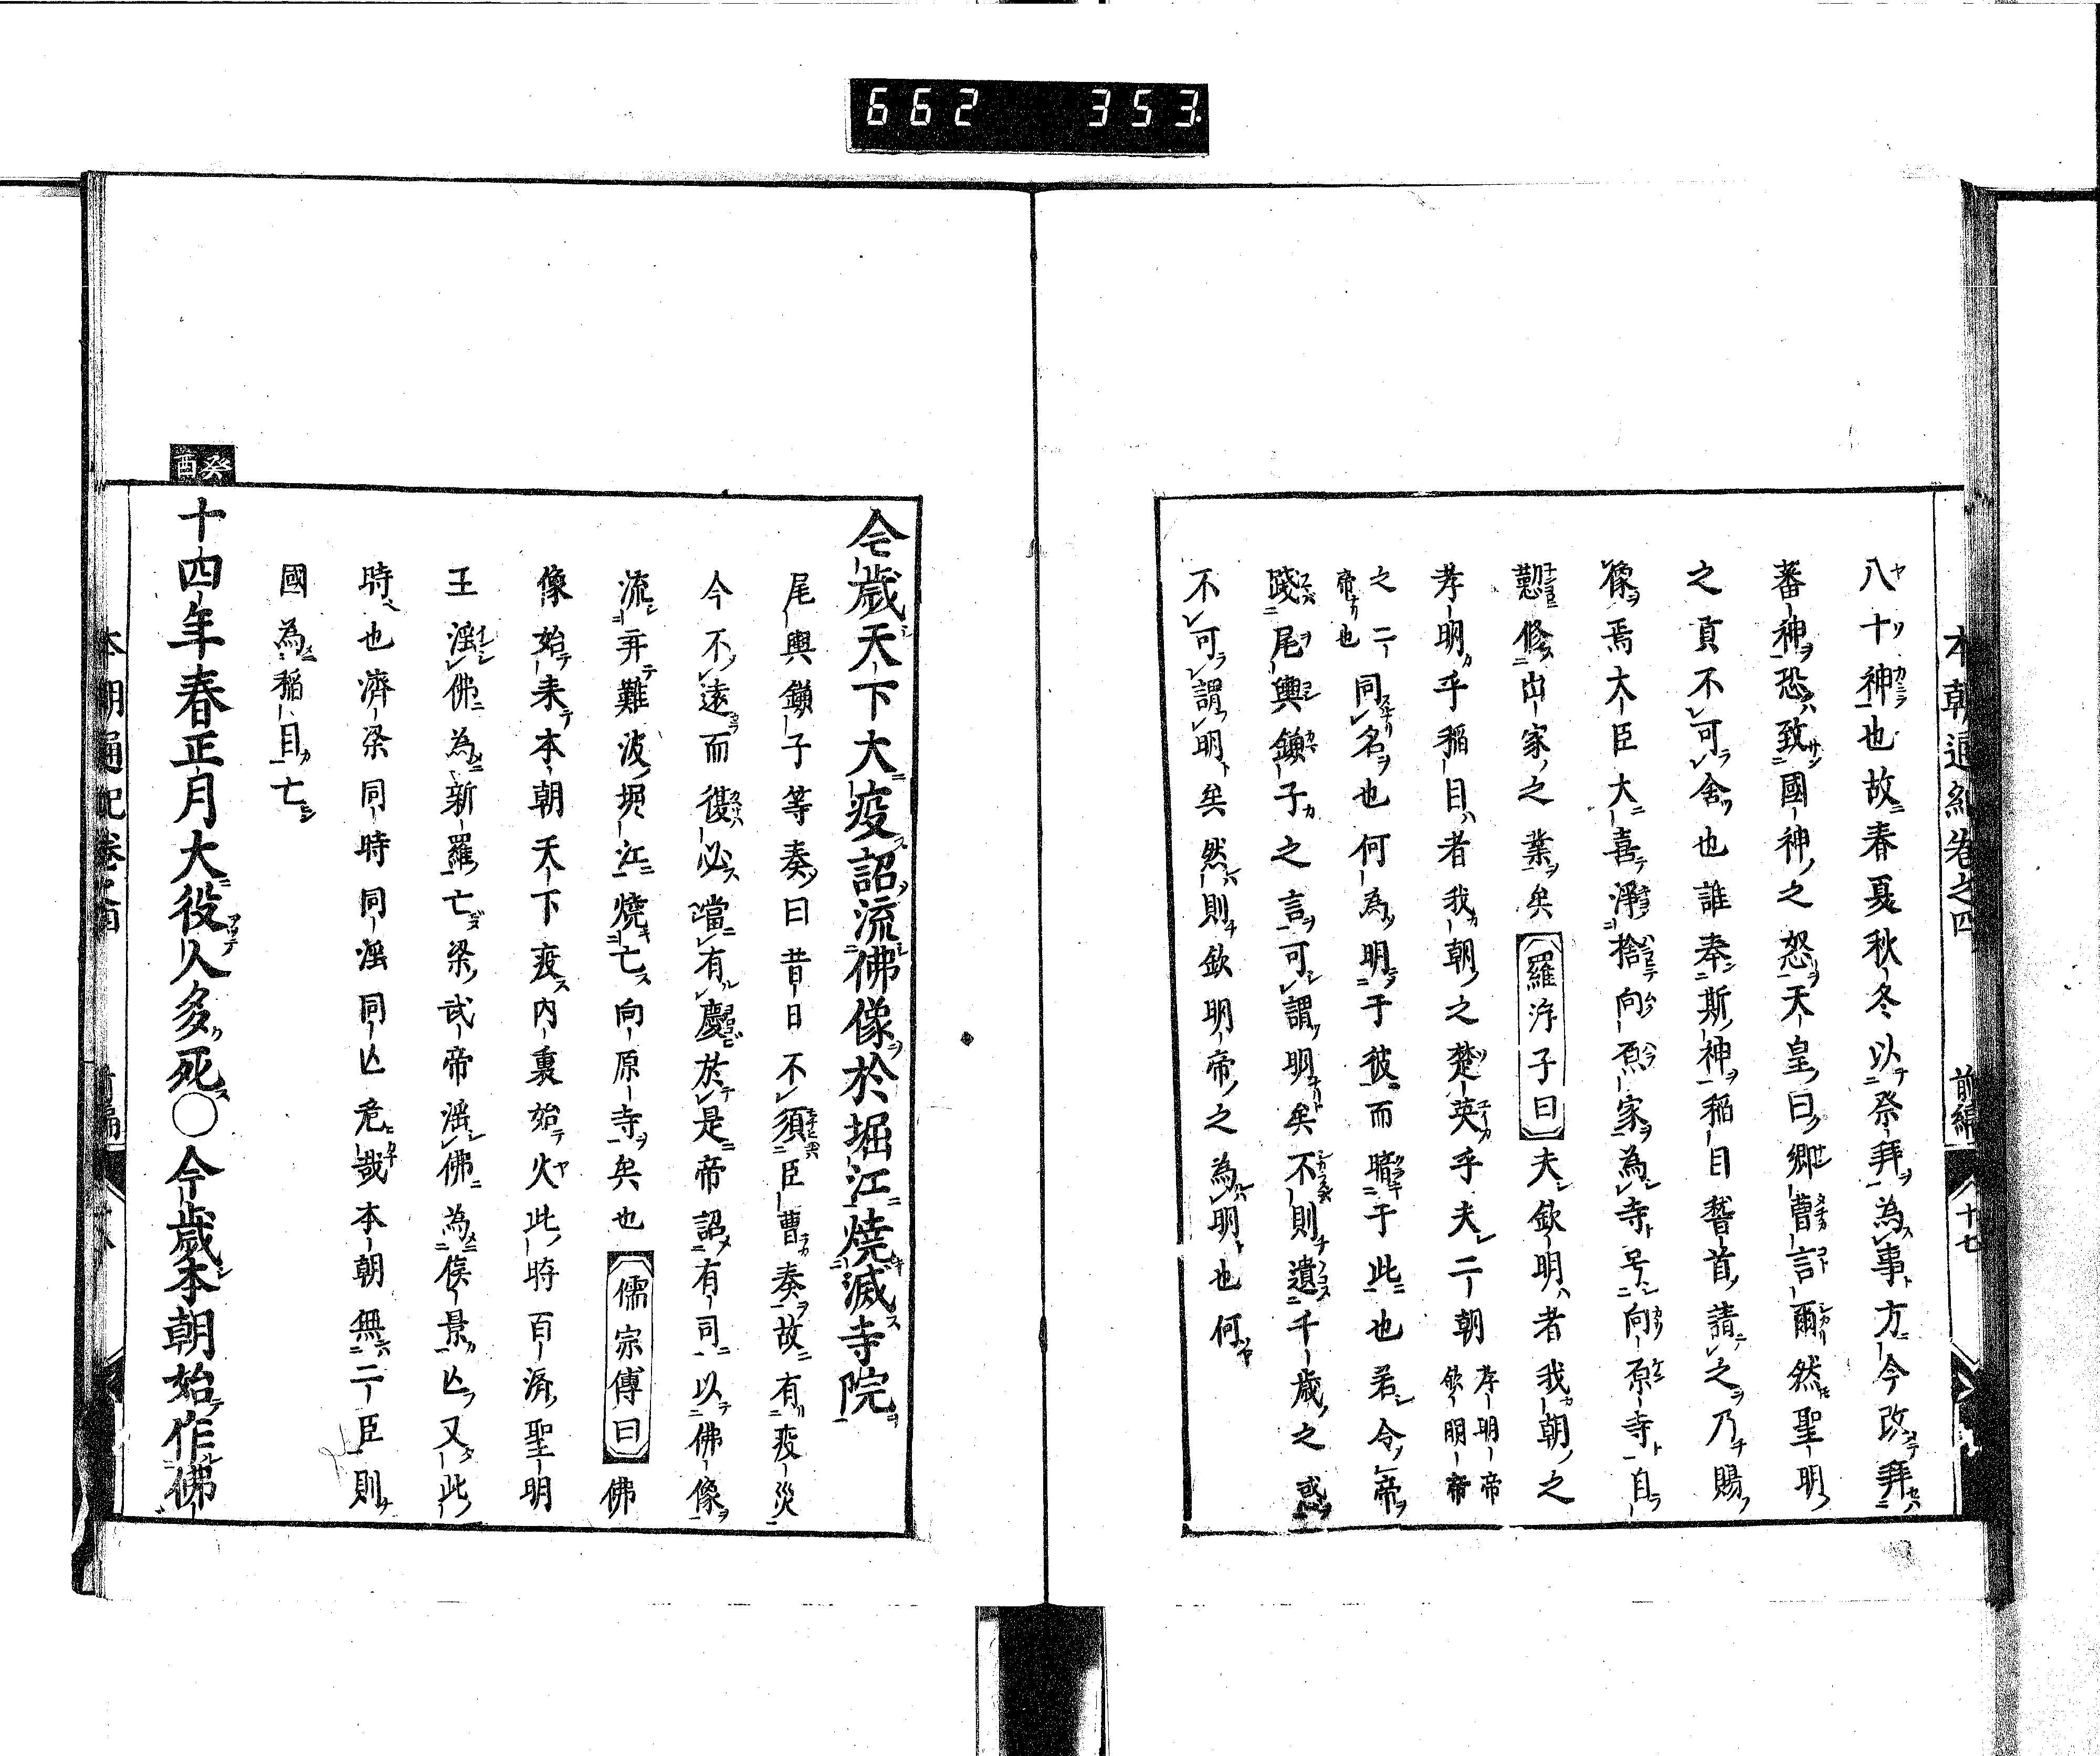 662 353
本朝通紀卷之四 前編 十七
八十神也故春夏秋冬以祭拜為事方今改拜
蕃神恐致國神之怒天皇曰卿曹言爾然聖明
之貢不可舍也誰奉斯神稲目稽首請之乃賜
像焉大臣大喜淨捨向原家為寺号向原寺自
懃修出家之業矣羅浮子曰夫欽明者我朝之
孝明乎稲目者我朝之楚英乎夫二朝孝明帝欽明帝
之二帝也同名也何為明于彼而暗于此也若令帝
踐尾輿鎌子之言可謂明矣不則遺千歳之惑
不可謂明矣然則欽明帝之為明也何
今歳天下大疫詔流佛像於堀江燒滅寺院
尾輿鎌子等奏曰昔日不須臣曹奏故有疫災
今不遠而復必當有慶於是帝詔有司以佛像
流弃難波堀江燒亡向原寺矣也儒宗傳曰佛
像始来本朝天下疫内裏始火此時百濟聖明
王滛佛為新羅亡梁武帝滛佛為侯景亾又此
時也濟梁同時同滛同亾危哉本朝無二臣則
國為稲目亡
癸酉
十四年春正月大役人多死○今歳本朝始作佛